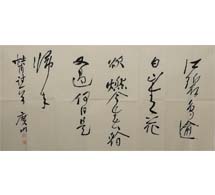 江碧鳥逾
白山青花
欲燃今春看
又過何日是
歸年